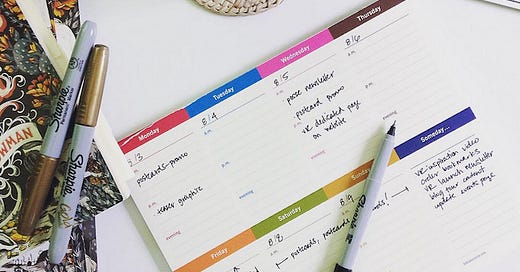 Monday
8/3
a.m.
postcards promo
p.m.
teaser graphic
evening
Tuesday
8/4
a.m.
p.m.
evening
Wednesday
8/5
a.m.
posse newsletter
p.m.
postcard promo
ve dedicated page
on website
evening
Thursday
8/6
a.m.
p.m.
evening
Friday
Saturday
8/8
a.m.
postcards, postcards
Sunday
8/9
Someday...
ve inspiration video
order bookmarks
ve launch newsletter
blog tour content
update events page
Sharpie
Sharpie
Sharpie
NMAN